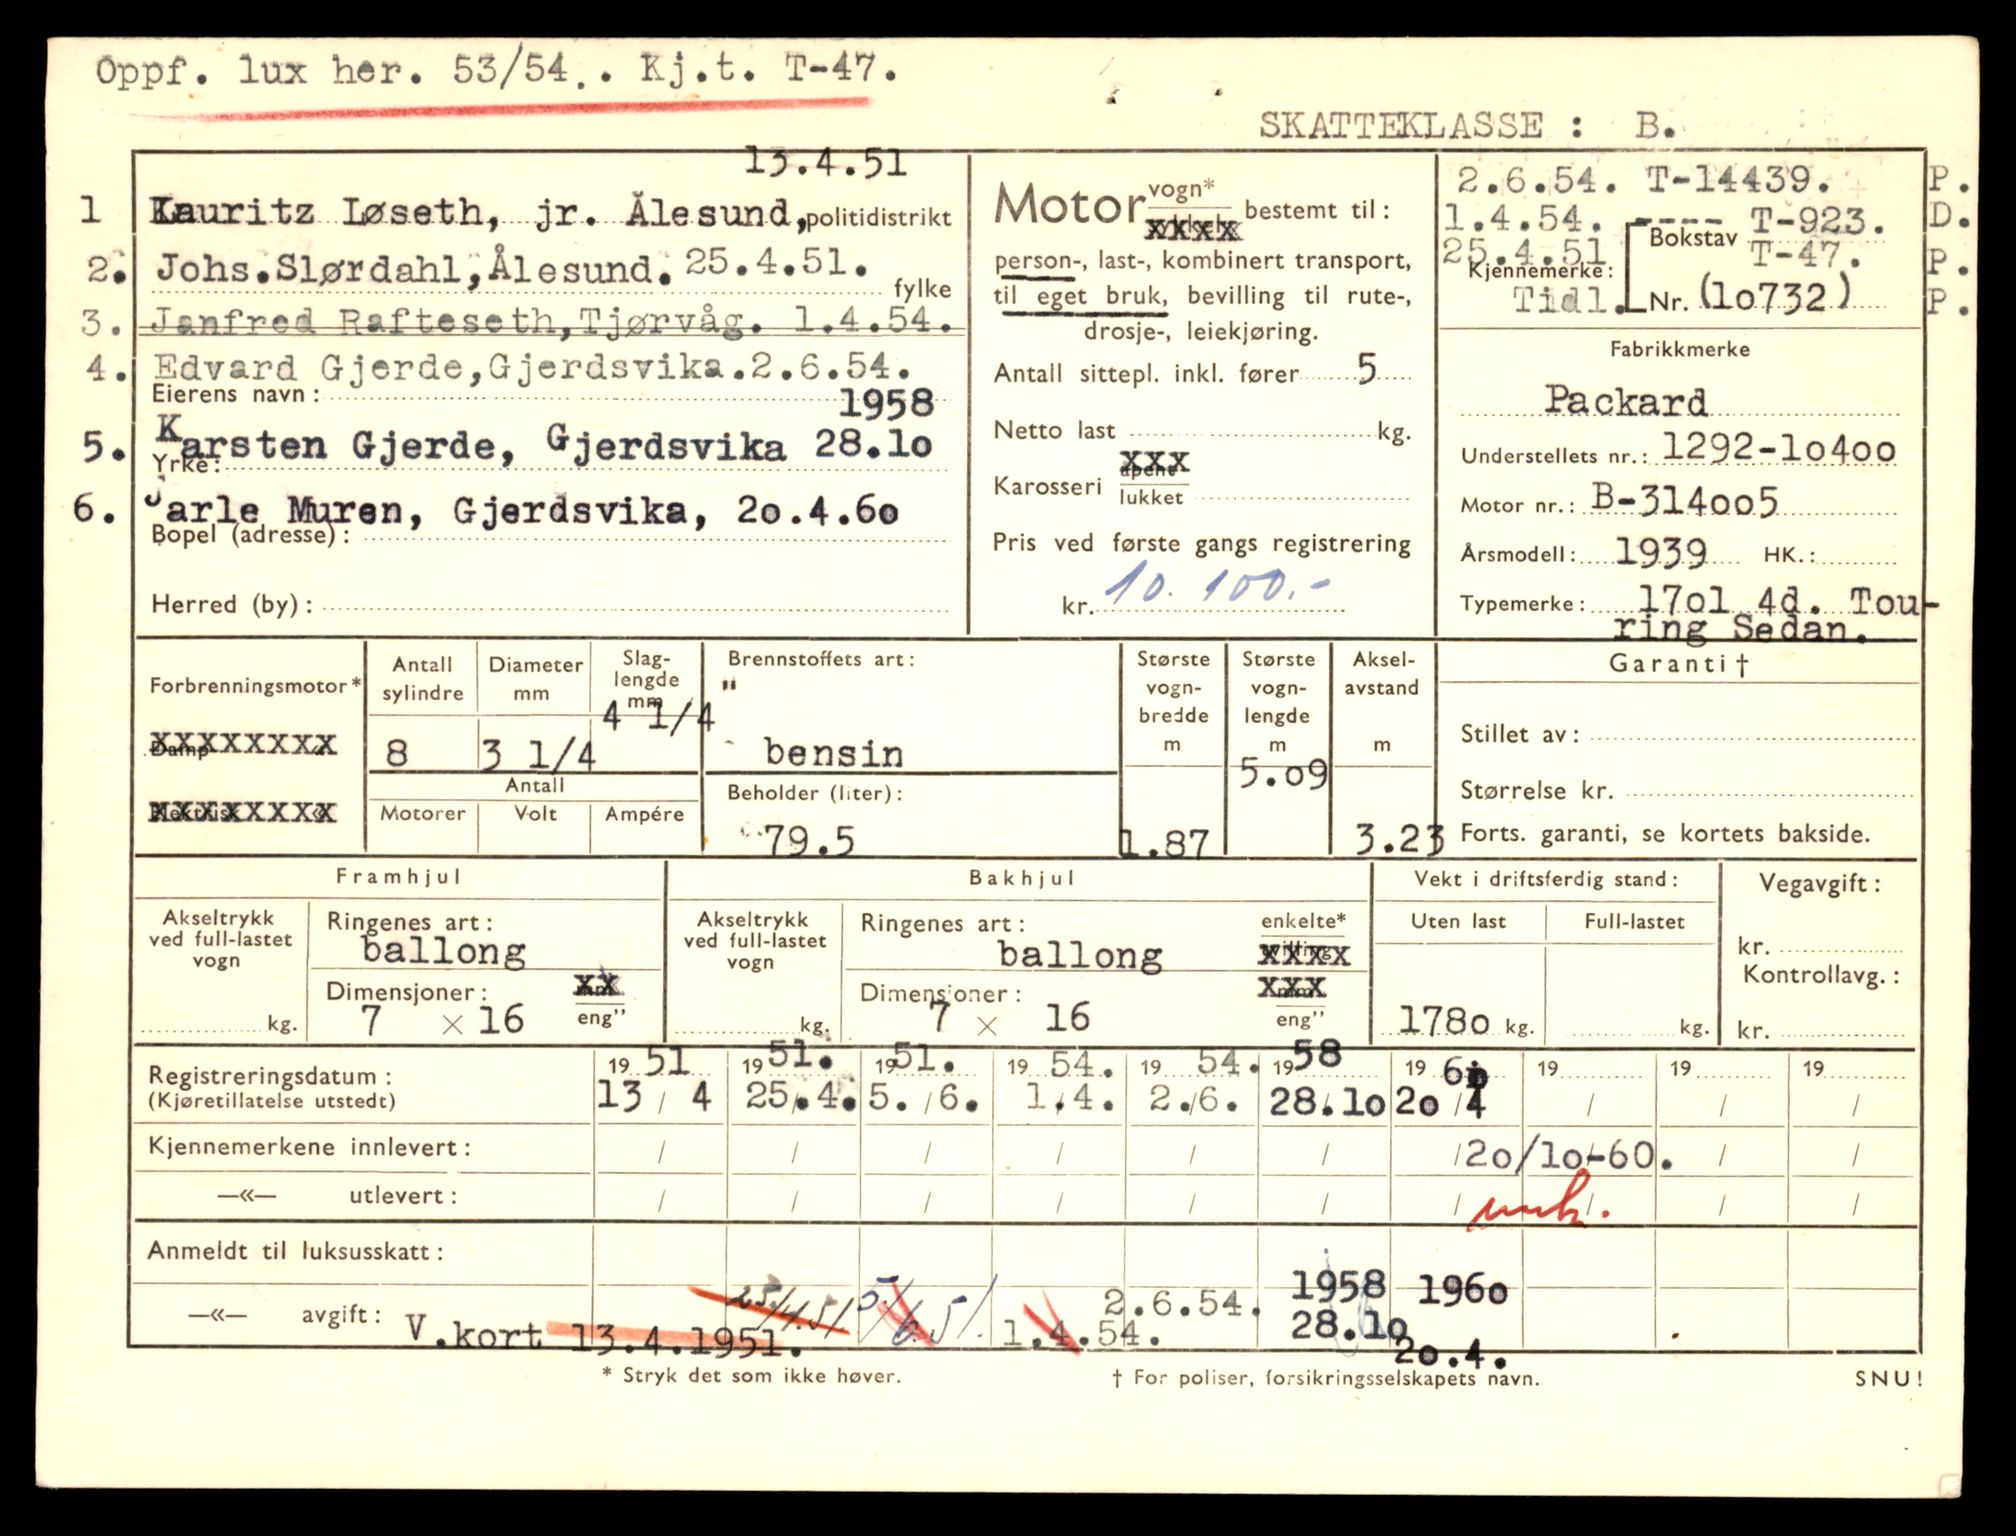 Oppf. lux her. 53/54. . Kj.t. T-47.
SKATTEKLASSE : B.
13.4.51
1 Lauritz Løseth, jr. Ålesund, politidistrikt
2. Johs.Slørdahl,Ålesund. 25.4.51.
fylke
3. Janfred Rafteseth,Tjørvåg. 1.4.54.
4. Edvard Gjerde,Gjerdsvika.2.6.54.
Eierens navn :
1958
5. Karsten Gjerde, Gjerdsvika 28.10
Yrke:
6. Jarle Muren, Gjerdsvika, 20.4.60
Bopel (adresse) :
Herred (by) :
Motor vogn* bestemt til :
xxxx
person-, last-, kombinert transport,
til eget bruk, bevilling til rute-,
drosje-, leiekjøring.
Antall sittepl. inkl. fører 5
Netto last kg.
xxx
Karosseri åpent
lukket
Pris ved første gangs registrering
kr. 10.100.-
2.6.54. T-14439. P.
1.4.54. ---- T-923. D.
Bokstav
25.4.51 T-47. P.
Kjennemerke :
Tidl. Nr. (10732) P.
Fabrikkmerke
Packard
Understellets nr. : 1292-10400
Motor nr. : B-314005
Årsmodell : 1939 HK. :
Typemerke : 1701 4d. Tou-
ring Sedan.
Forbrenningsmotor*
Damp "
xxxxxxxx
Elektrisk «
xxxxxxxx
Antall sylindre
8
Diameter mm
3 1/4
Slag-
lengde
mm
4 1/4
Antall
Motorer Volt Ampére
Brennstoffets art :
"
bensin
Beholder (liter) :
79.5
Største
vogn-
bredde
m
1.87
Største
vogn-
lengde
m
5.09
Aksel-
avstand
m
3.23
Garanti †
Stillet av :
Størrelse kr.
Forts. garanti, se kortets bakside.
Framhjul
Akseltrykk
ved full-lastet
vogn
kg.
Ringenes art :
ballong
Dimensjoner : xx
7 × 16 eng”
Bakhjul
Akseltrykk
ved full-lastet
vogn
kg.
Ringenes art : enkelte*
ballong xxxx
Dimensjoner : xxx
7 × 16 eng”
Vekt i driftsferdig stand :
Uten last Full-lastet
1780 kg. kg.
Vegavgift :
kr.
Kontrollavg. :
kr.
Registreringsdatum : 19 51 19 51. 19 51. 19 54. 19 54. 19 58 19 60 19 19 19
(Kjøretillatelse utstedt) 13 / 4 25./4. 5. /6. 1./4. 2./6. 28./10 20 / 4 / / /
Kjennemerkene innlevert : / / / / / / / 20/10-60. / /
—«— utlevert : / / / / / / / / / /
Anmeldt til luksusskatt :
—«— avgift : V.kort 13.4.1951. 25./4.51 5./6.51. 1.4.54. 2.6.54. 1958 28.10 1960 20.4.
* Stryk det som ikke høver.
† For poliser, forsikringsselskapets navn.
SNU!